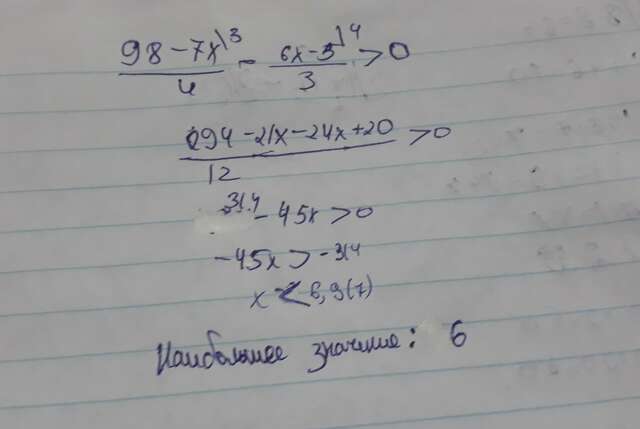 98-7x\3 / 4 - 6x-5\4 / 3 > 0
294-21x-24x+20 / 12 > 0
314-45x>0
-45x>-314
x<6,9(7)
Наибольшее значение: 6